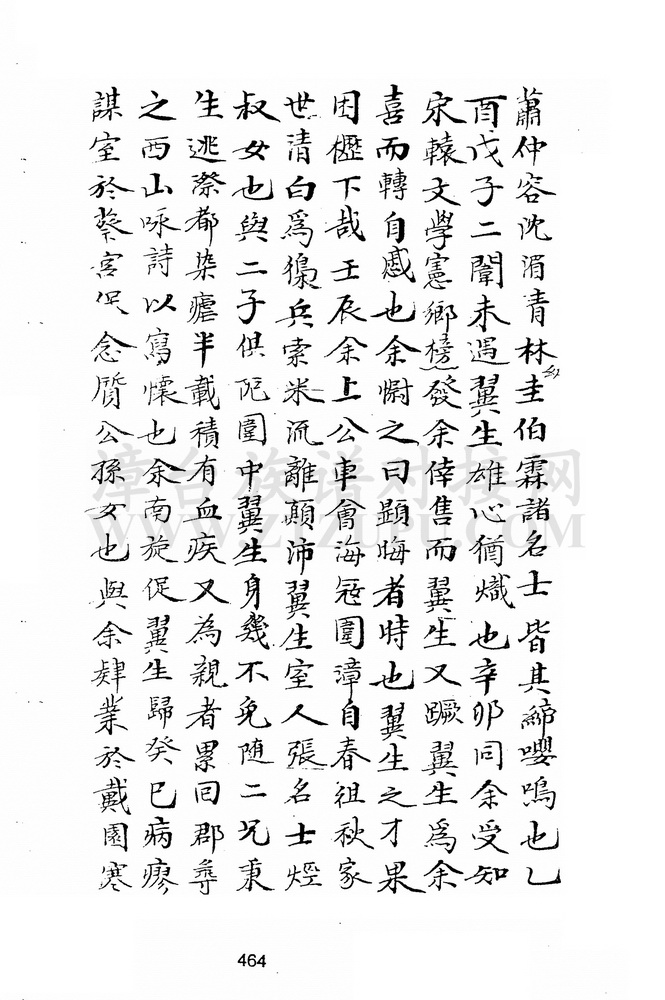 蕭仲容沈湄青林圭伯霖諸名士皆其締嚶鳴也乙
酉戊子二闈未遇翼生雄心猶熾也辛卯同余受知
宋轅文學憲鄉榜發余倖售而翼生又蹶翼生為余
喜而轉自慼也余慰之曰顕晦者時也翼生之才果
困櫪下哉壬辰余上公車會海冦圍漳自春徂秋家
世清白為獷兵索米流離顛沛翼生室人張名士烴
叔女也與二子俱阨圍中翼生身幾不免随二兄東
生逃深都染瘧半載積有血疾又為親者累回郡尋
之西山咏詩以寫懷也余南旋促翼生歸癸巳病瘳
謀室於蔡宫保念質公孫女也與余肄業於戴園寒
漳台族谱对接网
WWW.ZTZUPU.COM
464